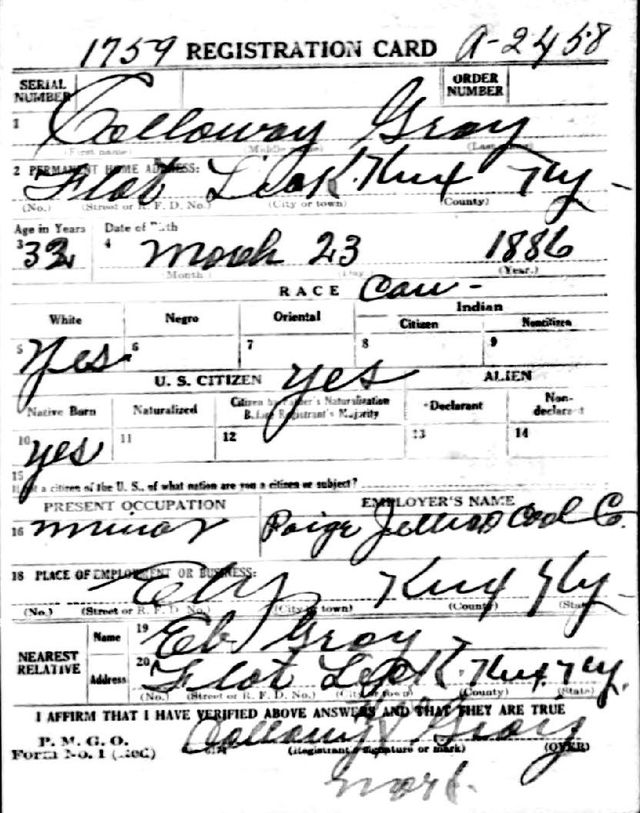 1759 REGISTRATION CARD A-2458
SERIAL NUMBER ORDER NUMBER
1 Colloway Gray
(First name) (Middle name) (Last name)
2 PERMANENT HOME ADDRESS:
Flat Lick Knx Ky -
(No.) (Street or R. F. D. No.) (City or town) (County)
Age in Years Date of Birth
3 32 4 March 23 1886
(Month) (Day) (Year.)
RACE Cau -
White Negro Oriental Indian
Citizen Noncitizen
5 Yes 6 7 8 9
U. S. CITIZEN yes ALIEN
Native Born Naturalized Citizen by Father's Naturalization Before Registrant's Majority Declarant Non-declarant
10 yes 11 12 13 14
15
If not a citizen of the U. S., of what nation are you a citizen or subject?
PRESENT OCCUPATION EMPLOYER'S NAME
16 Coal Co.
18 PLACE OF EMPLOYMENT OR BUSINESS:
Knx Ky
(No.) (Street or R. F. D. No.) (City or town) (County) (State)
NEAREST RELATIVE Name 19 Eb Gray
Address 20 Flat Lick Knx Ky.
(No.) (Street or R. F. D. No.) (City or town) (County) (State)
I AFFIRM THAT I HAVE VERIFIED ABOVE ANSWERS AND THAT THEY ARE TRUE
P. M. G. O.
Form No. 1 (Red) Colloway X Gray
(Registrant's signature or mark) (OVER)
mark.